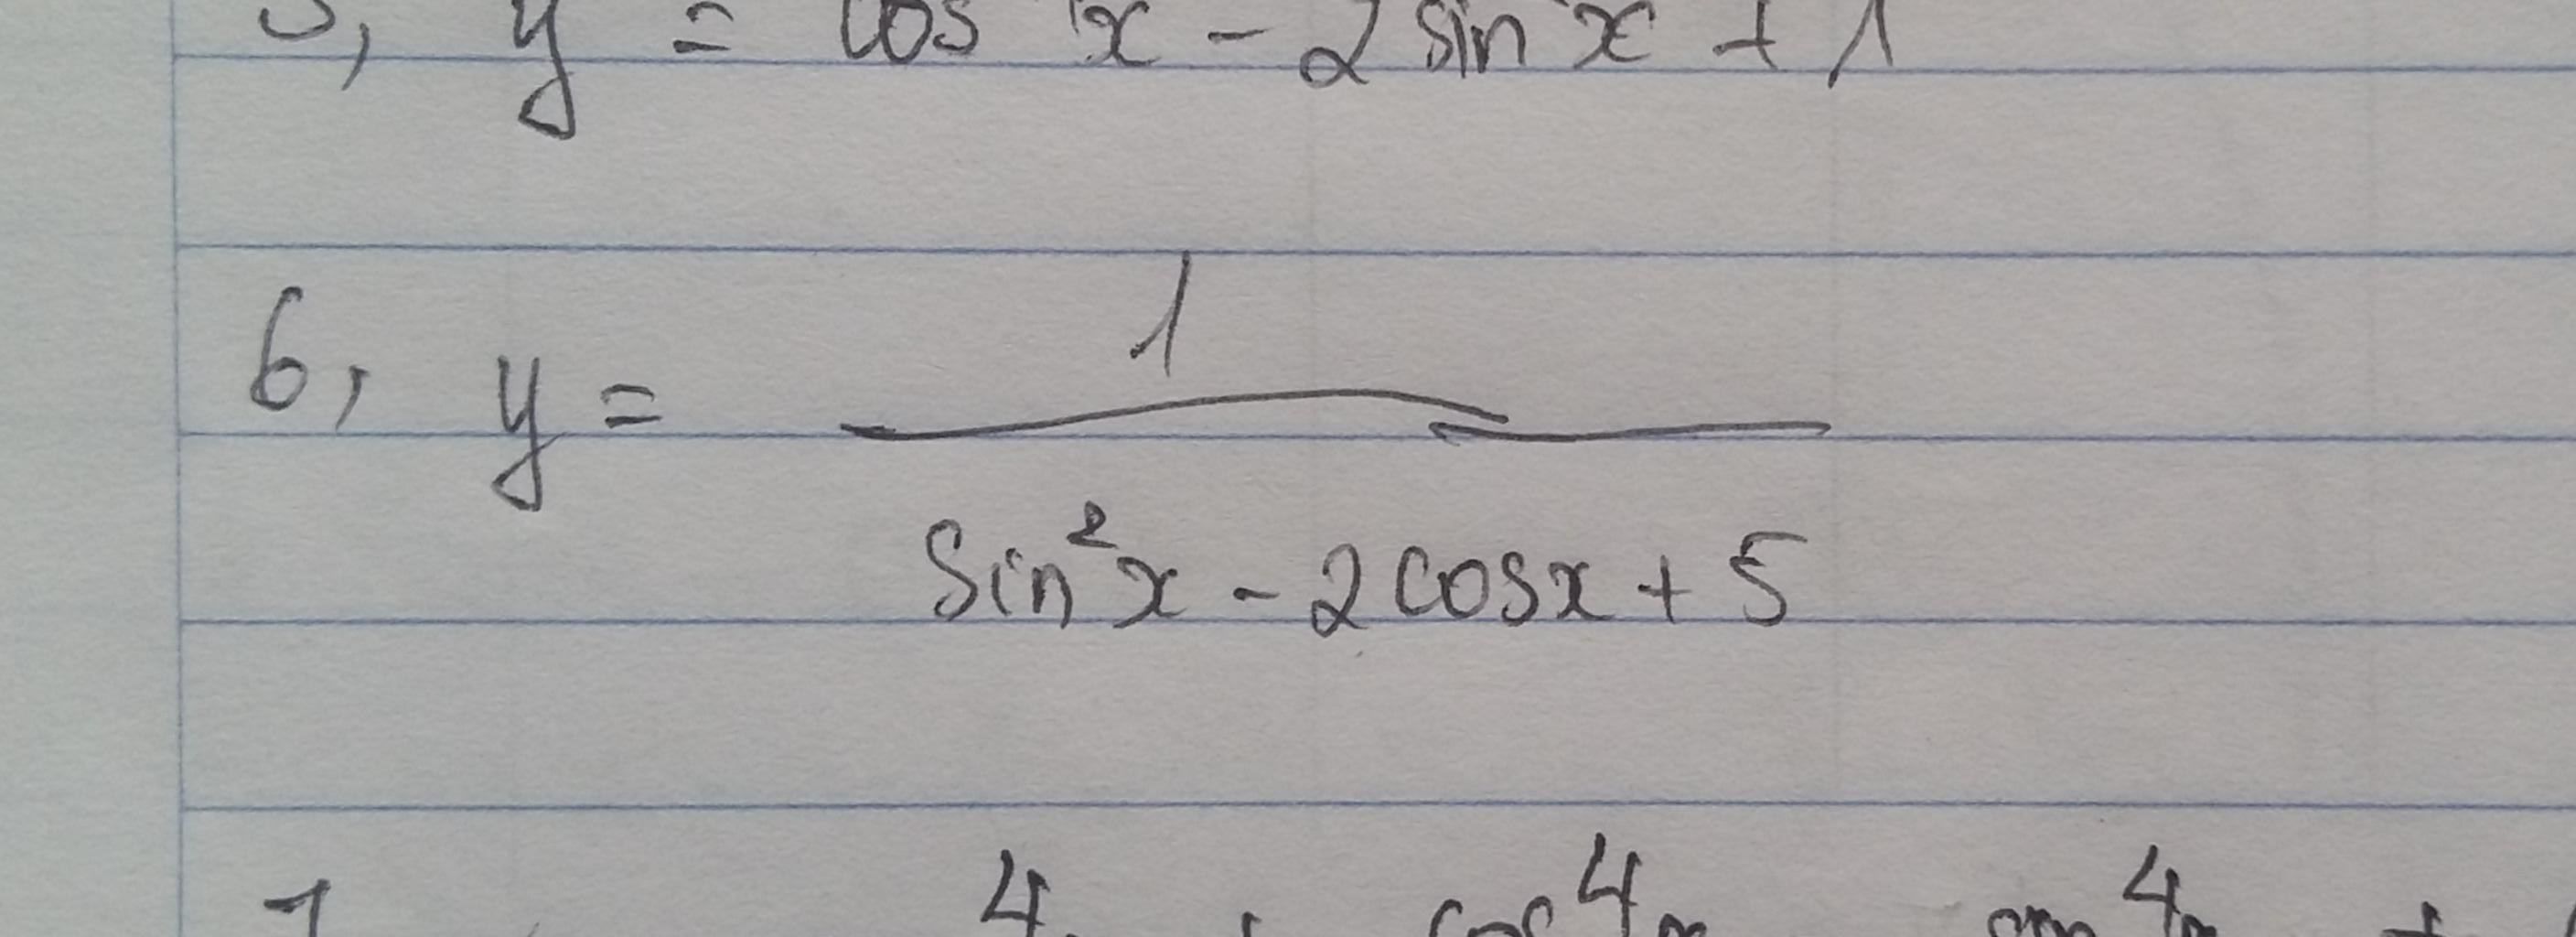 5, y = cos x - 2 sin x + 1
6, y = 1 / (sin²x - 2 cos x + 5)